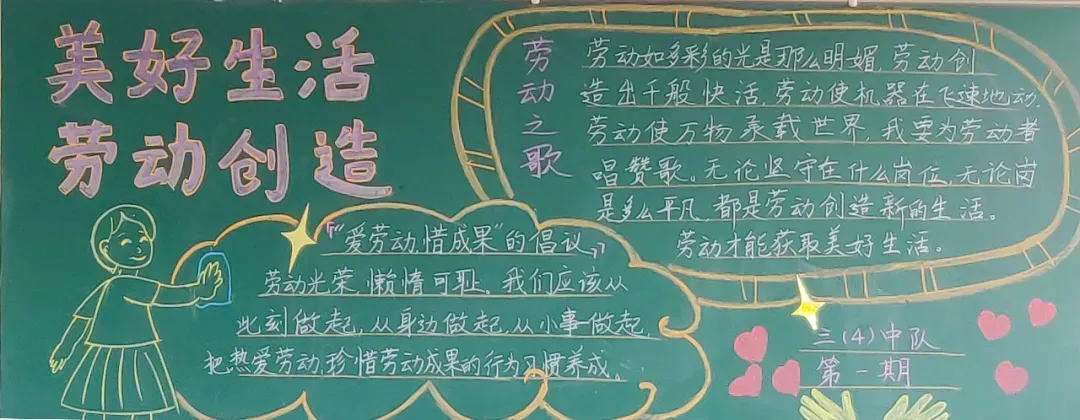 美好生活
劳动创造
劳动之歌
劳动如多彩的光是那么明媚,劳动创
造出千般快活,劳动使机器在飞速地动,
劳动使万物承载世界,我要为劳动者
唱赞歌。无论坚守在什么岗位,无论岗
是多么平凡,都是劳动创造新的生活。
劳动才能获取美好生活。
“爱劳动,惜成果”的倡议
劳动光荣,懒惰可耻。我们应该从
此刻做起,从身边做起,从小事做起,
把热爱劳动,珍惜劳动成果的行为习惯养成。
三(4)中队
第一期